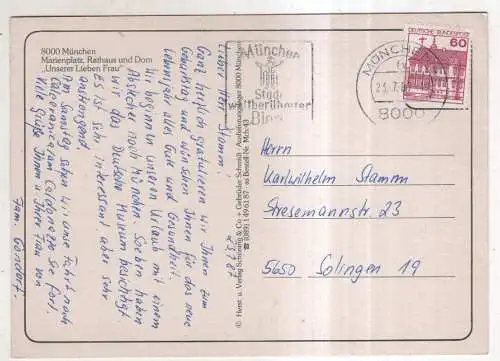 8000 München
Marienplatz, Rathaus und Dom
„Unserer Lieben Frau"
23.7.87
Lieber Herr Stamm!
Ganz herzlich gratulieren wir Ihnen zum
Geburtstag und wünschen Ihnen für das neue
Lebensjahr alles Gute und Gesundheit.
Wir beginnen unseren Urlaub mit einem
Abstecher nach München. Soeben haben
wir das Deutsche Museum besichtigt.
Es ist sehr interessant, aber sehr
anstrengend.
Am Samstag setzen wir unsere Fahrt nach
Calceranica/am Caldonazzo See fort.
Viele Grüße Ihnen u. Ihrer Frau von
Fam.
© Herst. u. Verlag Schöning & Co + Gebrüder Schmidt · Auslieferungslager 8000 München
☎ (089) 1 49 61 87 · Bestell-Nr. Mch. 43
München
Stadt
weltberühmter
Biere
MÜNCHEN
8000
DEUTSCHE BUNDESPOST
60
Herrn
Karlwilhelm Stamm
Stresemannstr. 23
5650 Solingen 19